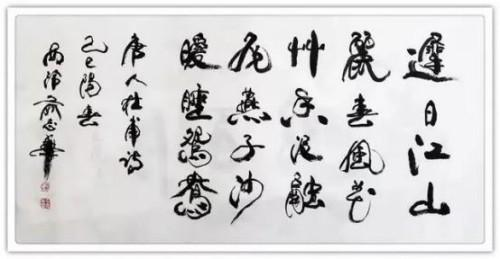 遲日江山
麗春風花
艸香泥融
飛燕子沙
暖睡鴛鴦
唐人杜甫詩
陽春